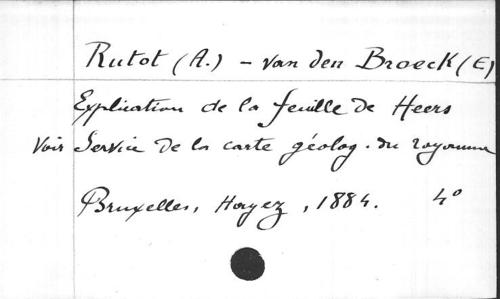 Rutot (A.) - van den Broeck (E)
Explication de la feuille de Heers
Voir Service de la carte géolog. du royaume
Bruxelles, Hayez, 1884. 4°